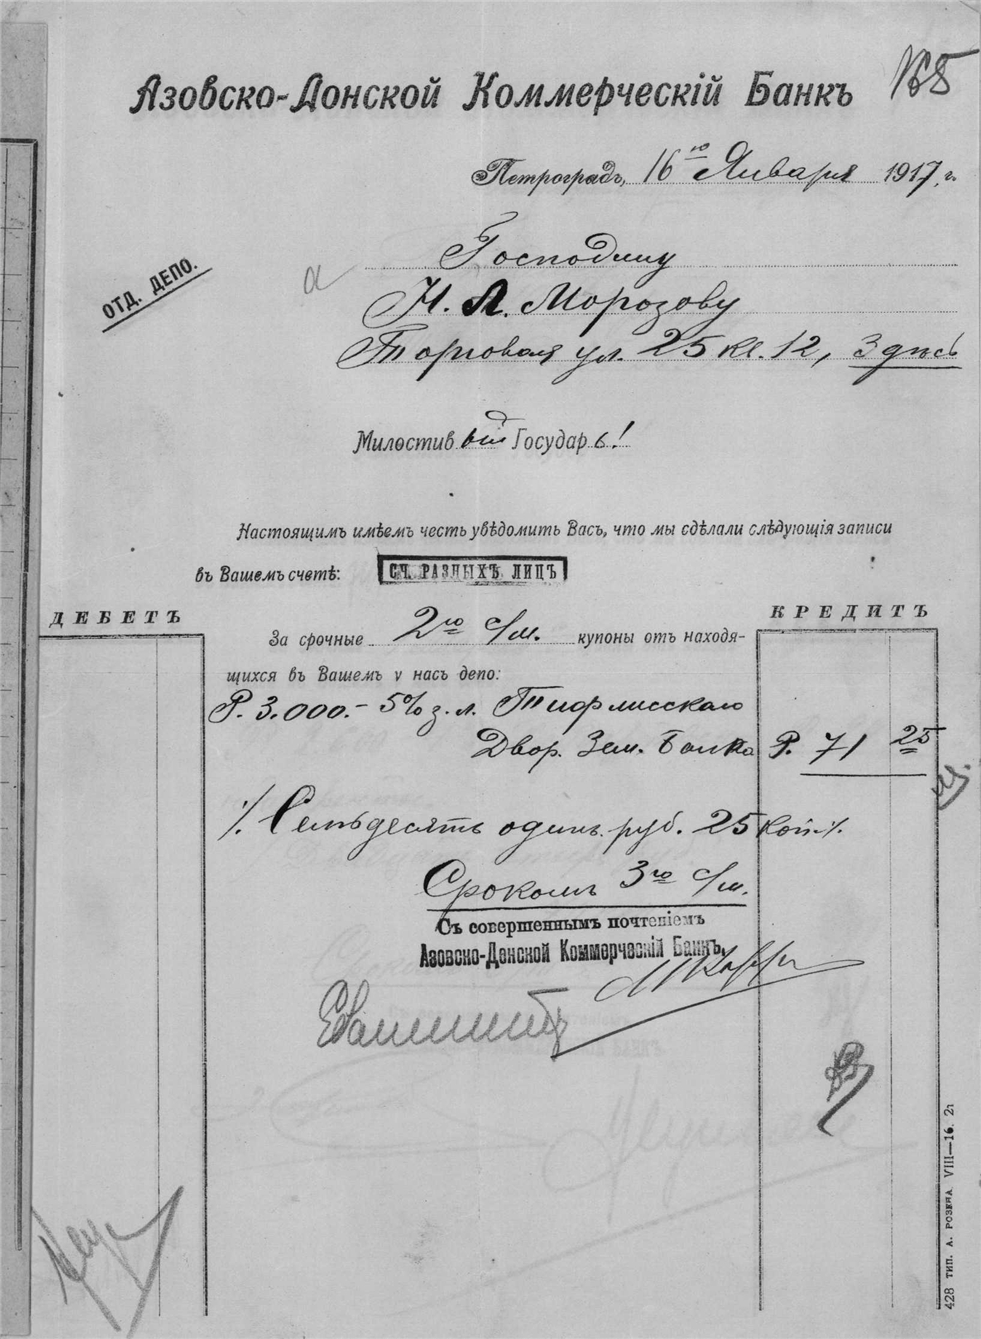 Азовско-Донской Коммерческій Банкъ
Петроградъ, 16го Января 1917 г.
ОТД. ДЕПО.
Господину
Н. А. Морозову
Торговая ул. 25 кв. 12, Здѣсь
Милостивый Государь!
Настоящимъ имѣемъ честь увѣдомить Васъ, что мы сдѣлали слѣдующія записи
въ Вашемъ счетѣ: СЧ. РАЗНЫХЪ ЛИЦЪ
ДЕБЕТЪ КРЕДИТЪ
За срочные 2го с/м. купоны отъ находя-
щихся въ Вашемъ у насъ депо:
Р. 3.000.- 5% з. л. Тифлисскаго
Двор. Зем. Банка Р. 71 25
/. Семьдесятъ одинъ руб. 25 коп. /.
Срокомъ 3го с/м.
Съ совершеннымъ почтеніемъ
Азовско-Донской Коммерческій Банкъ,
428 тип. А. РОЗЕНА VIII—16. 2г